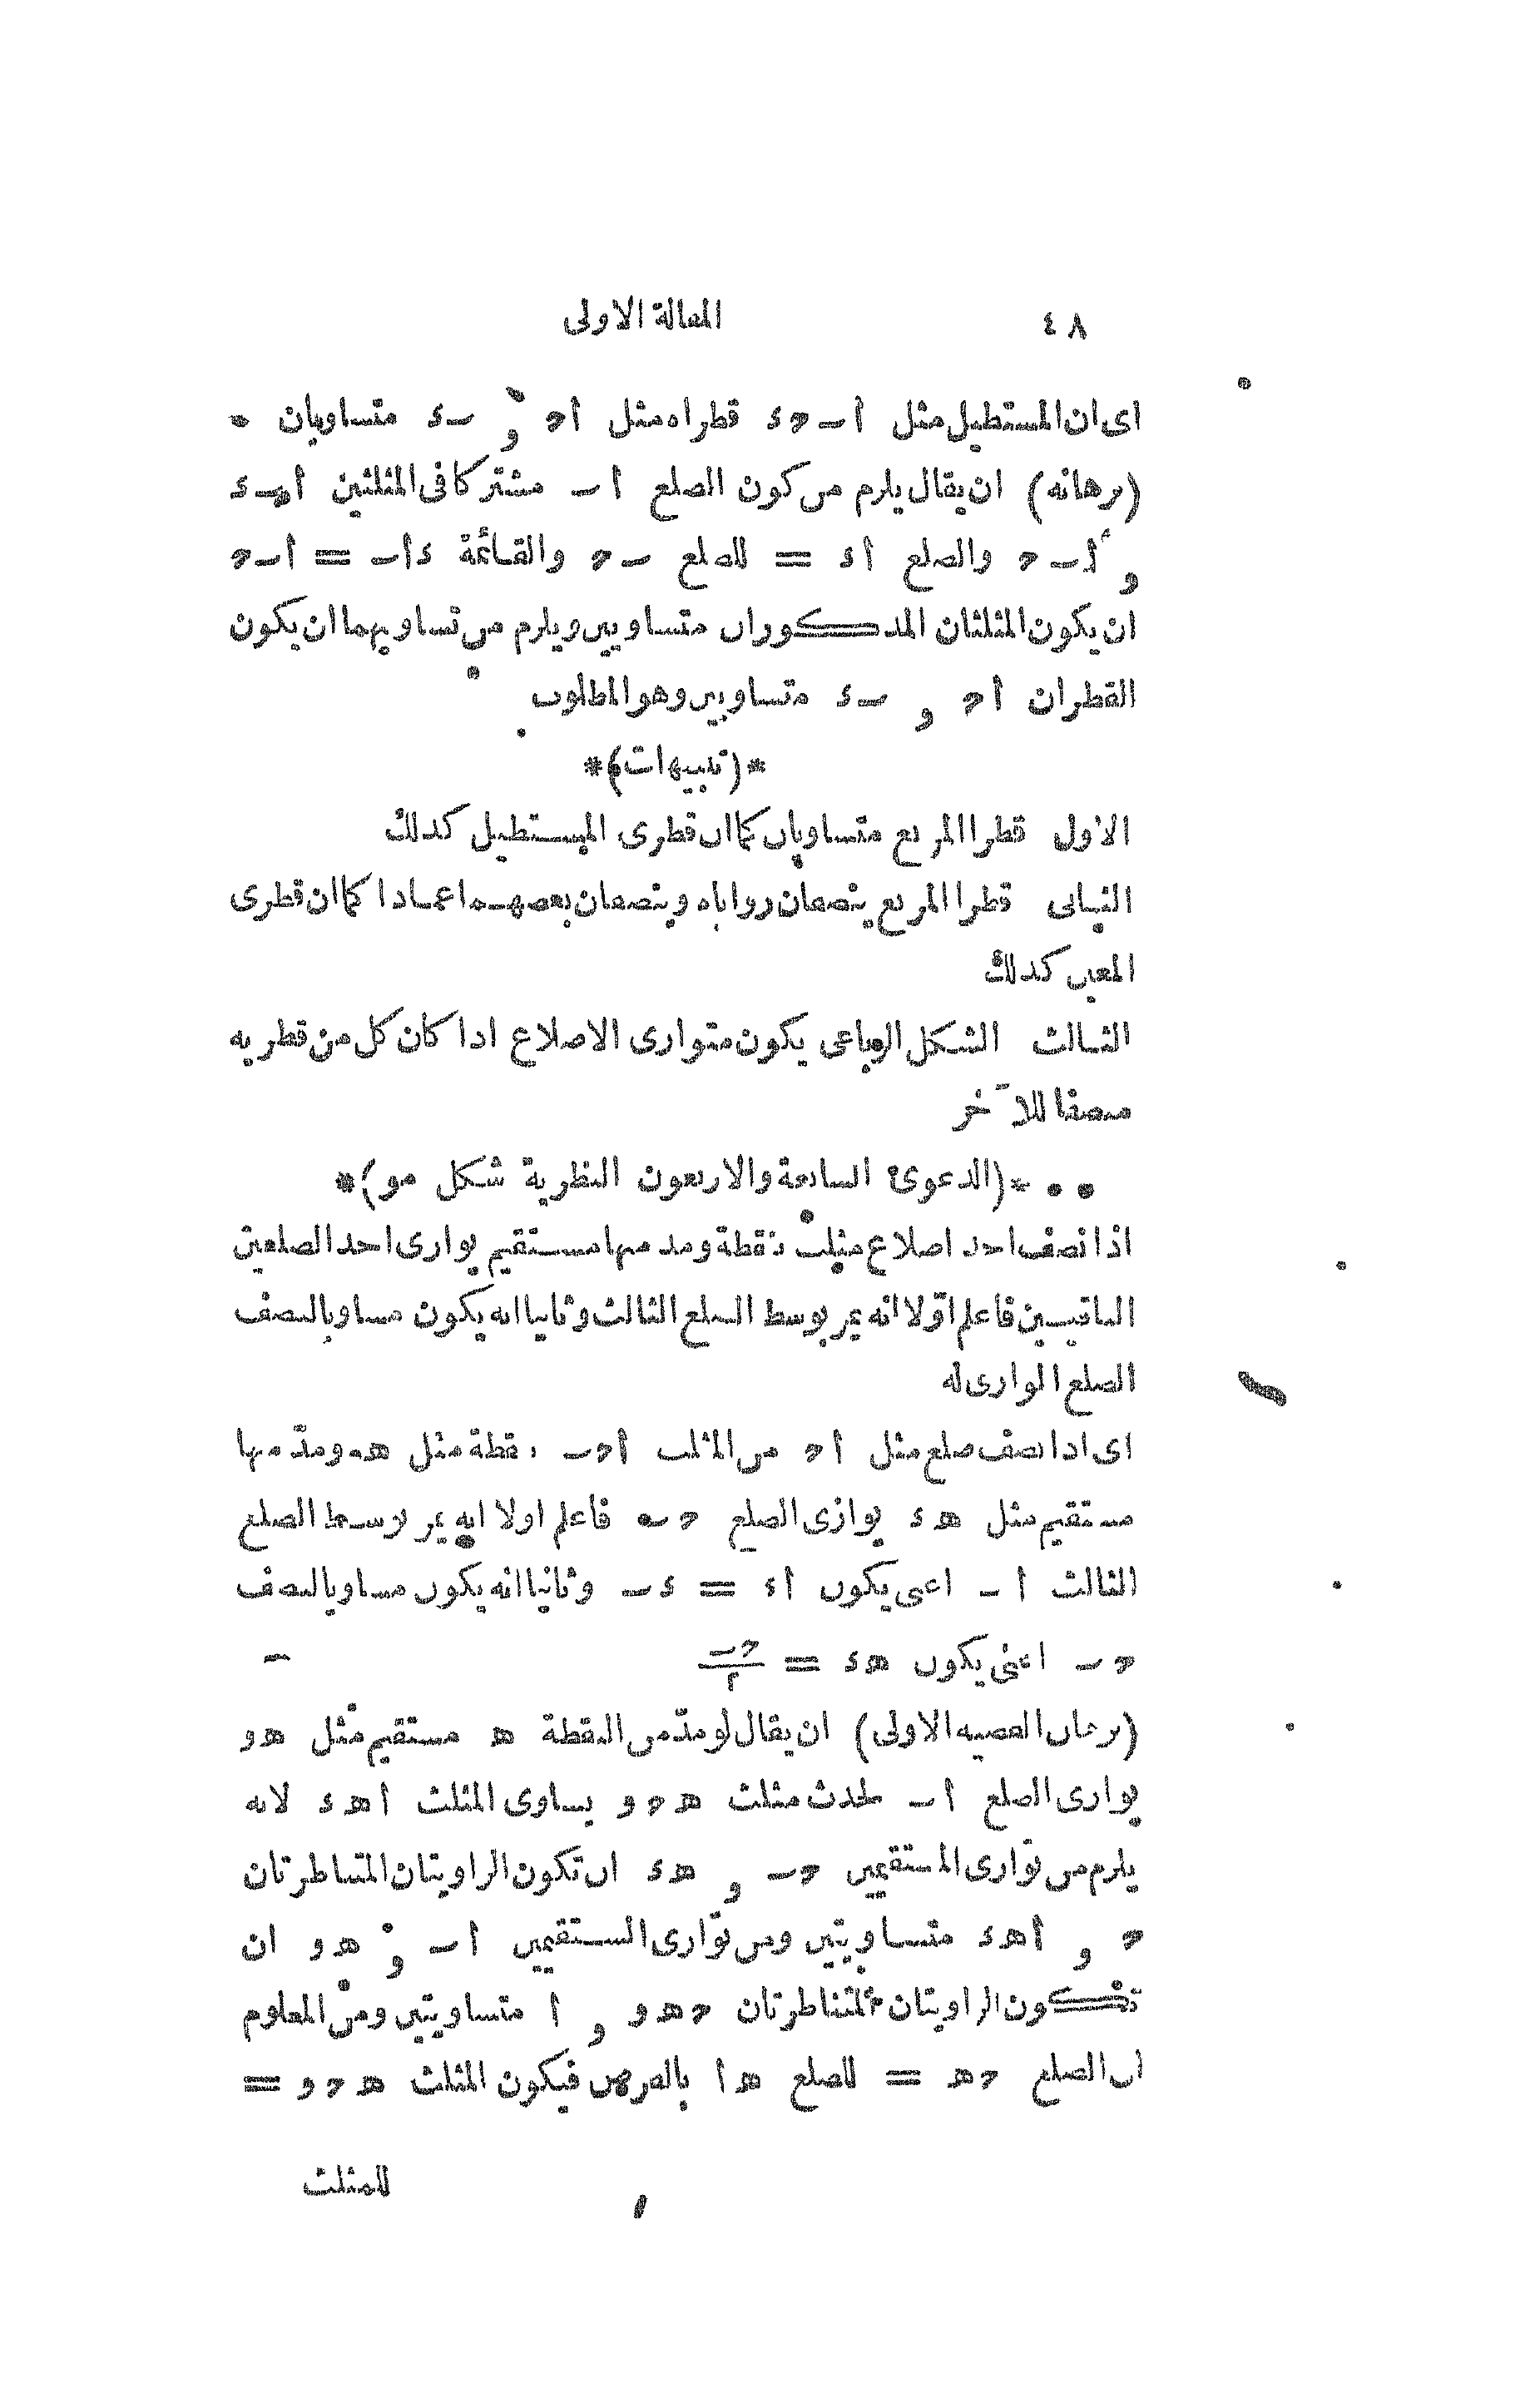 ٤٨ المقالة الاولى
اى ان المستطيل مثل أ ب ح د قطراه مثل أح و ب د متساويان
(برهانه) ان يقال يلزم من كون الضلع أ ب مشتركا فى المثلثين أ ب د
و أ ب ح والضلع أ د = للضلع ب ح والقائمة د أ ب = أ ب ح
ان يكون المثلثان المذكوران متساويين ويلزم من تساويهما ان يكون
القطران أح و ب د متساويين وهو المطلوب
*(تنبيهات)*
الاول قطرا المربع متساويان كما ان قطرى المستطيل كذلك
الثانى قطرا المربع ينصفان زواياه وينصفان بعضهما عمادا كما ان قطرى
المعين كذلك
الثالث الشكل الرباعى يكون متوازى الاضلاع اذا كان كل من قطريه
منصفا للآخر
*(الدعوى السابعة والاربعون النظرية شكل مو)*
اذا نصف احد اضلاع مثلث بنقطة ومد منها مستقيم يوازى احد الضلعين
الباقيين فاعلم اوّلا انه يمر بوسط الضلع الثالث وثانيا انه يكون مساويا لنصف
الضلع الموازى له
اى اذا نصف ضلع مثل أ ح من المثلث أ ح ب بنقطة مثل هـ ومدّ منها
مستقيم مثل هـ د يوازى الضلع ح ب فاعلم اولا انه يمر بوسط الضلع
الثالث أ ب اعنى يكون أ د = د ب وثانيا انه يكون مساويا لنصف
ح ب اعنى يكون هـ د = ح ب / ٢
(برهان القضية الاولى) ان يقال لو مدّ من النقطة هـ مستقيم مثل هـ و
يوازى الضلع أ ب لحدث مثلث هـ ح و يساوى المثلث أ هـ د لانه
يلزم من توازى المستقيمين ح ب و هـ د ان تكون الزاويتان المتناظرتان
ح و أ هـ د متساويتين ومن توازى المستقيمين أ ب و هـ و ان
تكون الزاويتان المتناظرتان ح هـ و و أ متساويتين ومن المعلوم
ان الضلع ح هـ = للضلع هـ أ بالفرض فيكون المثلث هـ ح و =
للمثلث